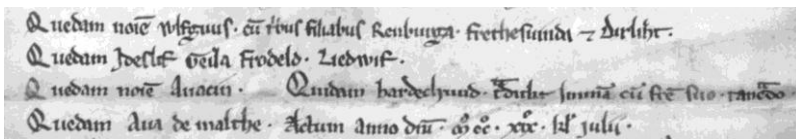 Quedam noiē Wlfguus. cū tͥbus filiabus Renburga. Frethesunda ⁊ Dirlint.
Quedam Geila Frodeld. Liedwif.
Quedam noiē Auacin. Quidam hardechund. cū frē suo. tancdo.
Quedam Aua de malthe. Actum anno dnī. Mͦ. CCͦ. XIXͦ. kl̄ Julii.